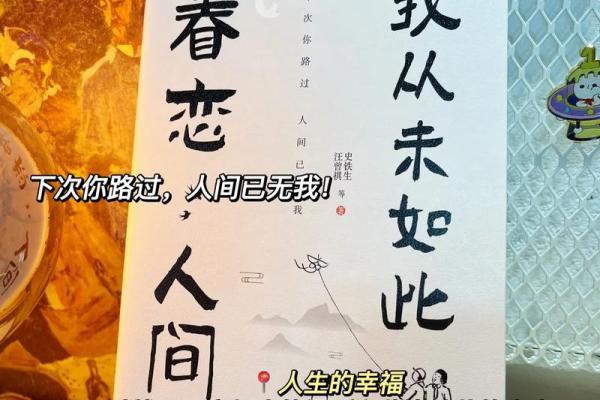 我从未如此
眷恋人间
次你路过 人间已
我
史铁生
汪曾祺 等 著
下次你路过，人间已无我！
人生的幸福